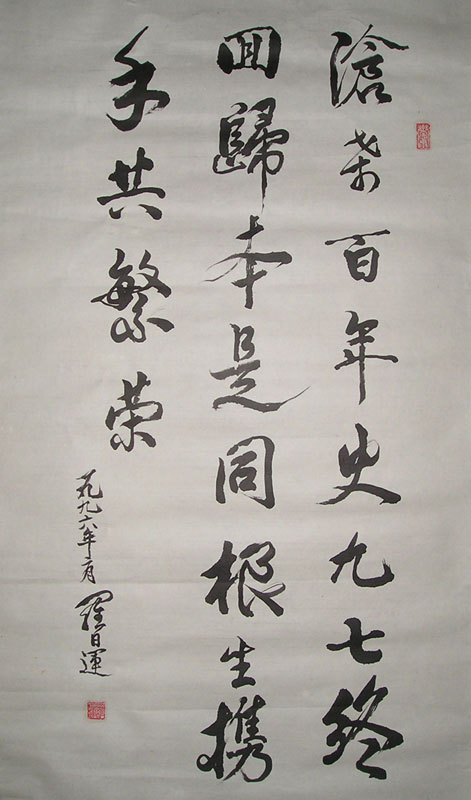 滄桒百年史九七終
回歸本是同根生携
手共繁荣
九六年 月
羅日運